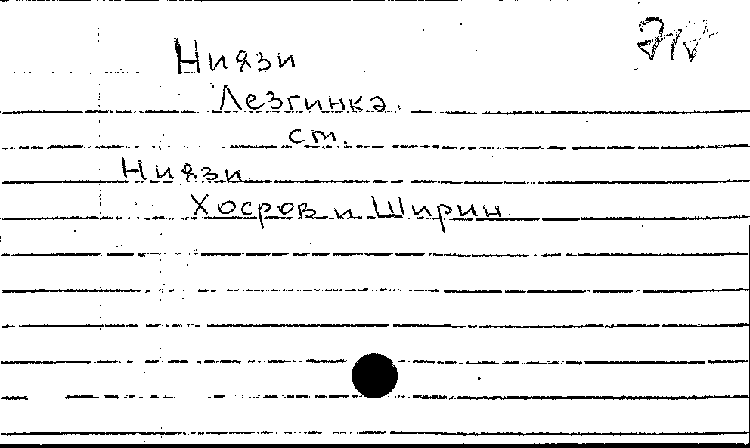 Ниязи
Лезгинка.
ст.
Ниязи
Хосров и Ширин